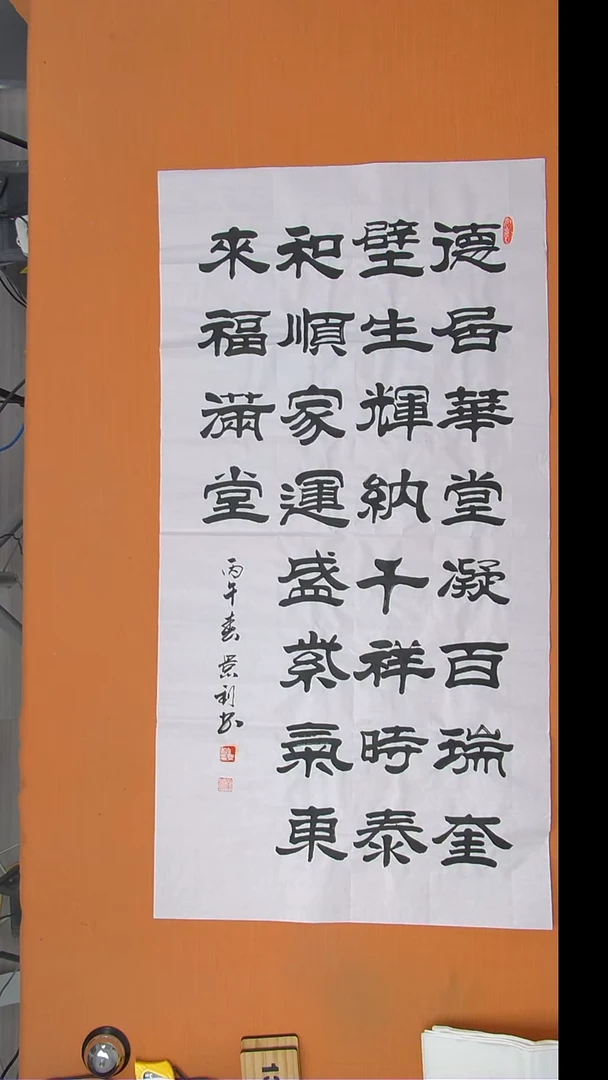 德居華堂凝百瑞奎
壁生輝納千祥時泰
和順家運盛紫氣東
來福滿堂
丙午春景利書